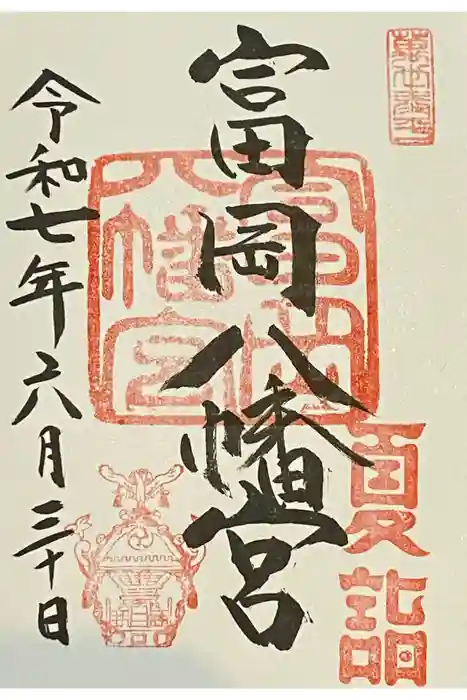 富岡八幡宮
夏詣
富岡八幡宮
令和七年六月三十日